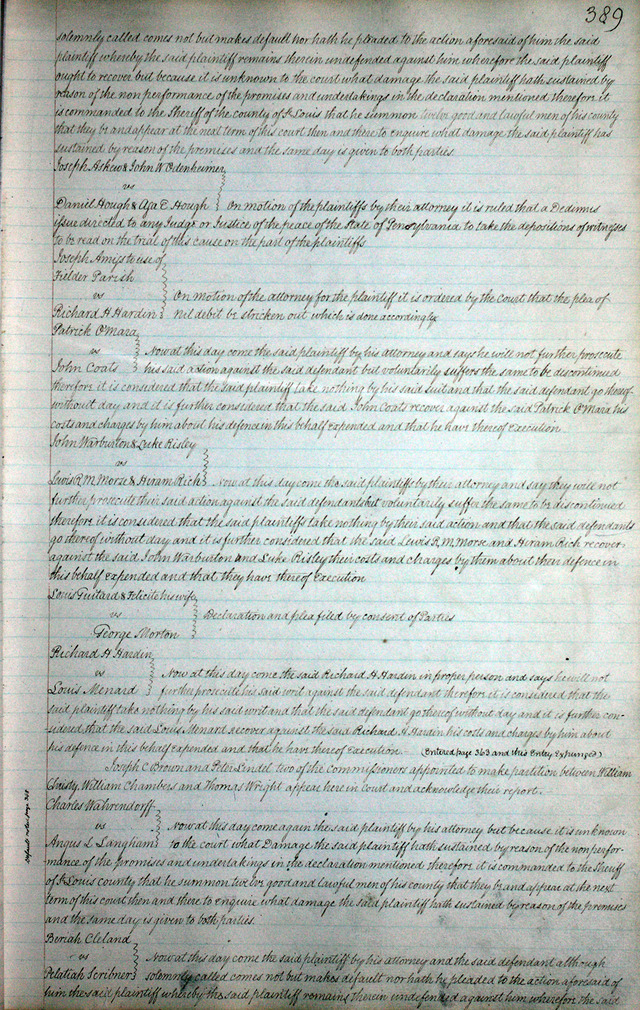 389
solemnly called comes not but makes default nor hath he pleaded to the action aforesaid of him the said
plaintiff whereby the said plaintiff remains therein undefended against him wherefore the said plaintiff
ought to recover but because it is unknown to the court what damage the said plaintiff hath sustained by
reason of the non performance of the promises and undertakings in the declaration mentioned therefore it
is commanded to the Sheriff of the county of St Louis that he summon twelve good and lawful men of his county
that they be and appear at the next term of this court then and there to enquire what damage the said plaintiff has
sustained by reason of the premises and the same day is given to both parties.
Joseph Askew & John W Odenheimer
vs
Daniel Hough & Asa E Hough On motion of the plaintiffs by their attorney it is ruled that a Dedimus
issue directed to any Judge or Justice of the peace of the State of Pensylvania to take the depositions of witnesses
to be read on the trial of this cause on the part of the plaintiffs
Joseph Amiss to use of
Fielder Parish
vs On motion of the attorney for the plaintiff it is ordered by the court that the plea of
Richard H Hardin nil debit be stricken out which is done accordingly
Patrick O'Mara
vs Now at this day come the said plaintiff by his attorney and says he will not further prosecute
John Coats his said action against the said defendant but voluntarily suffers the same to be discontinued
therefore it is considered that the said plaintiff take nothing by his said suit and that the said defendant go thereof
without day and it is further considered that the said John Coats recover against the said Patrick O'Mara his
costs and charges by him about his defence in this behalf expended and that he have thereof execution.
John Warburton & Luke Risley
vs
Lewis R. M Morse & Hiram Rich Now at this day come the said plaintiff by their attorney and say they will not
further prosecute their said action against the said defendants but voluntarily suffer the same to be discontinued
therefore it is considered that the said plaintiffs take nothing by their said action and that the said defendants
go thereof without day and it is further considered that the said Lewis R. M Morse and Hiram Rich recover
against the said John Warburton and Luke Risley their costs and charges by them about their defence in
this behalf expended and that they have thereof execution
Louis Guitard & Felicite his wife
vs Declaration and plea filed by consent of Parties
George Morton
Richard H Hardin
vs Now at this day come the said Richard H Hardin in proper person and says he will not
Louis Menard further prosecute his said writ against the said defendant therefore it is considered that the
said plaintiff take nothing by his said writ and that the said defendant go thereof without day and it is further con-
sidered that the said Louis Menard recover against the said Richard H Hardin his costs and charges by him about
his defence in this behalf expended and that he have thereof execution. (Entered page 363 and this Entry Expunged)
Joseph C Brown and Peter Lindel two of the commissioners appointed to make partition between William
Christy, William Chambers and Thomas Wright appear here in court and acknowledge their report.
Charles Wahrendorff
vs Now at this day come again the said plaintiff by his attorney but because it is unknown
Angus L Langham to the court what Damage the said plaintiff hath sustained by reason of the non perfor-
mance of the promises and undertakings in the declaration mentioned therefore it is commanded to the Sheriff
of St Louis county that he summon twelve good and lawful men of his county that they be and appear at the next
term of this court then and there to enquire what damage the said plaintiff hath sustained by reason of the premises
and the same day is given to both parties.
Beriah Cleland
vs Now at this day come the said plaintiff by his attorney and the said defendant although
Pelatiah Scribner solemnly called comes not but makes default nor hath he pleaded to the action aforesaid of
him the said plaintiff whereby the said plaintiff remains therein undefended against him wherefore the said